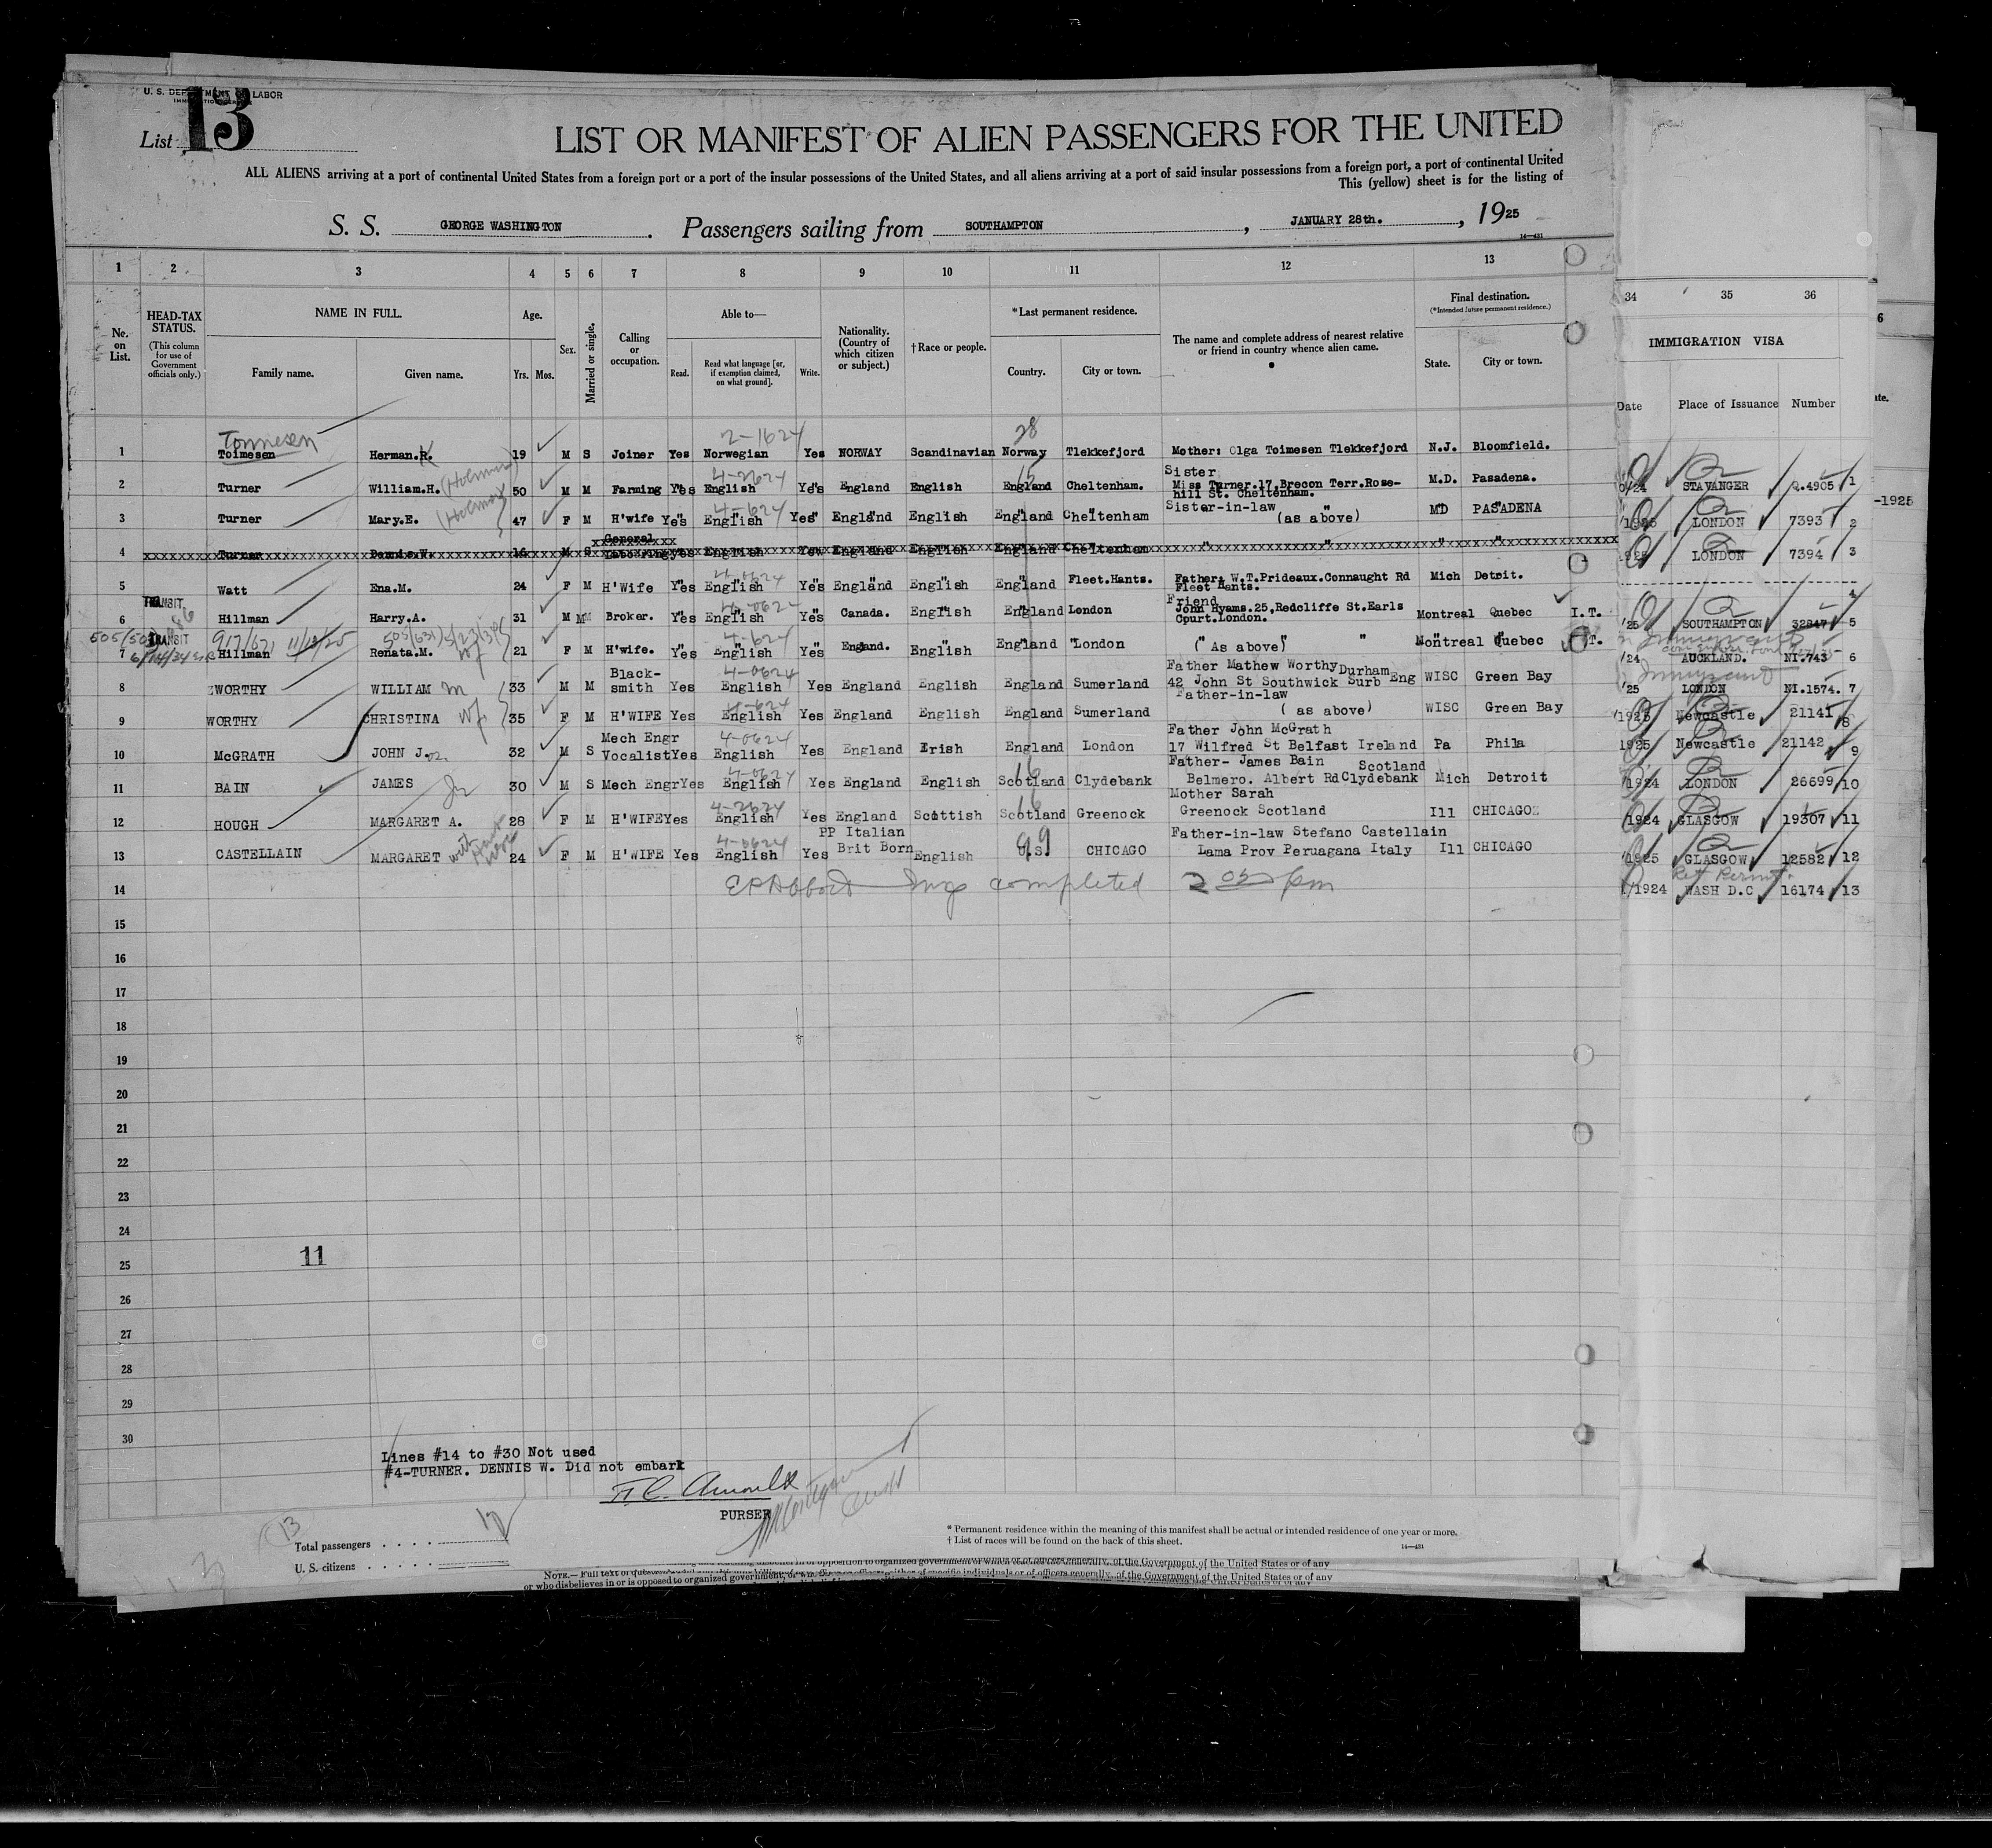 U. S. DEPARTMENT OF LABOR
List 13
LIST OR MANIFEST OF ALIEN PASSENGERS FOR THE UNITED
ALL ALIENS arriving at a port of continental United States from a foreign port or a port of the insular possessions of the United States, and all aliens arriving at a port of said insular possessions from a foreign port, a port of continental United
This (yellow) sheet is for the listing of
S. S. GEORGE WASHINGTON. Passengers sailing from SOUTHAMPTON, JANUARY 28th., 1925
14—431
1 2 3 4 5 6 7 8 9 10 11 12 13 34 35 36
No. on List.
HEAD-TAX STATUS. (This column for use of Government officials only.)
NAME IN FULL. Family name. Given name.
Age. Yrs. Mos.
Sex.
Married or single.
Calling or occupation.
Able to— Read. Read what language [or, if exemption claimed, on what ground]. Write.
Nationality. (Country of which citizen or subject.)
† Race or people.
* Last permanent residence. Country. City or town.
The name and complete address of nearest relative or friend in country whence alien came.
Final destination. (* Intended future permanent residence.) State. City or town.
IMMIGRATION VISA
Date Place of Issuance Number
Tonnesen 2-1624 28
1 Toimesen Herman.R. 19 M S Joiner Yes Norwegian Yes NORWAY Scandinavian Norway Tlekkefjord Mother: Olga Toimesen Tlekkefjord N.J. Bloomfield.
STAVANGER Q.4905 1
4-2624 15 Sister
2 Turner William.H. (Holmes) 50 M M Farming Yes English Yes England English England Cheltenham. Miss Turner.17,Brecon Terr.Rose-hill St. Cheltenham. M.D. Pasadena.
LONDON 7393 2
4-624 Sister-in-law
3 Turner Mary.E. (Holmes) 47 F M H'wife Yes English Yes England English England Cheltenham (as above) MD PASADENA
LONDON 7394 3
General
4 Turner Dennis.W. 16 M S Labouring Yes English Yes England English England Cheltenham " " " "
4
4-0624
5 Watt Ena.M. 24 F M H'Wife Yes English Yes England English England Fleet.Hants. Father: W.T.Prideaux.Connaught Rd Fleet Hants. Mich Detroit.
SOUTHAMPTON 32847 5
TRANSIT 4-0624 Friend
6 Hillman Harry.A. 31 M M Broker. Yes English Yes Canada. English England London John Hyams.25,Redcliffe St.Earls Court.London. Montreal Quebec I.T.
AUCKLAND. NI.743 6
TRANSIT 4-624
7 Hillman Renata.M. 21 F M H'wife. Yes English Yes England. English England London (As above) " Montreal Quebec I.T.
LONDON NI.1574. 7
4-0624
8 WORTHY WILLIAM m 33 M M Black-smith Yes English Yes England English England Sumerland Father Mathew Worthy Durham 42 John St Southwick Surb Eng WISC Green Bay
Newcastle 21141 8
4-624 Father-in-law
9 WORTHY CHRISTINA wf. 35 F M H'WIFE Yes English Yes England English England Sumerland (as above) WISC Green Bay
Newcastle 21142 9
4-0624 Father John McGrath
10 McGRATH JOHN J. 32 M S Mech Engr Vocalist Yes English Yes England Irish England London 17 Wilfred St Belfast Ireland Pa Phila
LONDON 26699 10
4-0624 16 Father- James Bain Scotland
11 BAIN JAMES 30 M S Mech Engr Yes English Yes England English Scotland Clydebank Belmero. Albert Rd Clydebank Mich Detroit
GLASGOW 19307 11
4-2624 16 Mother Sarah
12 HOUGH MARGARET A. 28 F M H'WIFE Yes English Yes England Scottish Scotland Greenock Greenock Scotland Ill CHICAGO
GLASGOW 12582 12
4-0624 99
13 CASTELLAIN MARGARET 24 F M H'WIFE Yes English Yes PP Italian Brit Born English U.S. CHICAGO Father-in-law Stefano Castellain Lama Prov Peruagana Italy Ill CHICAGO
Ret Permit
WASH D.C 16174 13
14 completed 2 05 pm
15
16
17
18
19
20
21
22
23
24
11
25
26
27
28
29
30
Lines #14 to #30 Not used
#4-TURNER. DENNIS W. Did not embark
PURSER
13
Total passengers . . . . 12
U. S. citizens . . . . .
* Permanent residence within the meaning of this manifest shall be actual or intended residence of one year or more.
† List of races will be found on the back of this sheet.
14—431
or who disbelieves in or is opposed to organized government
of the Government of the United States or of any